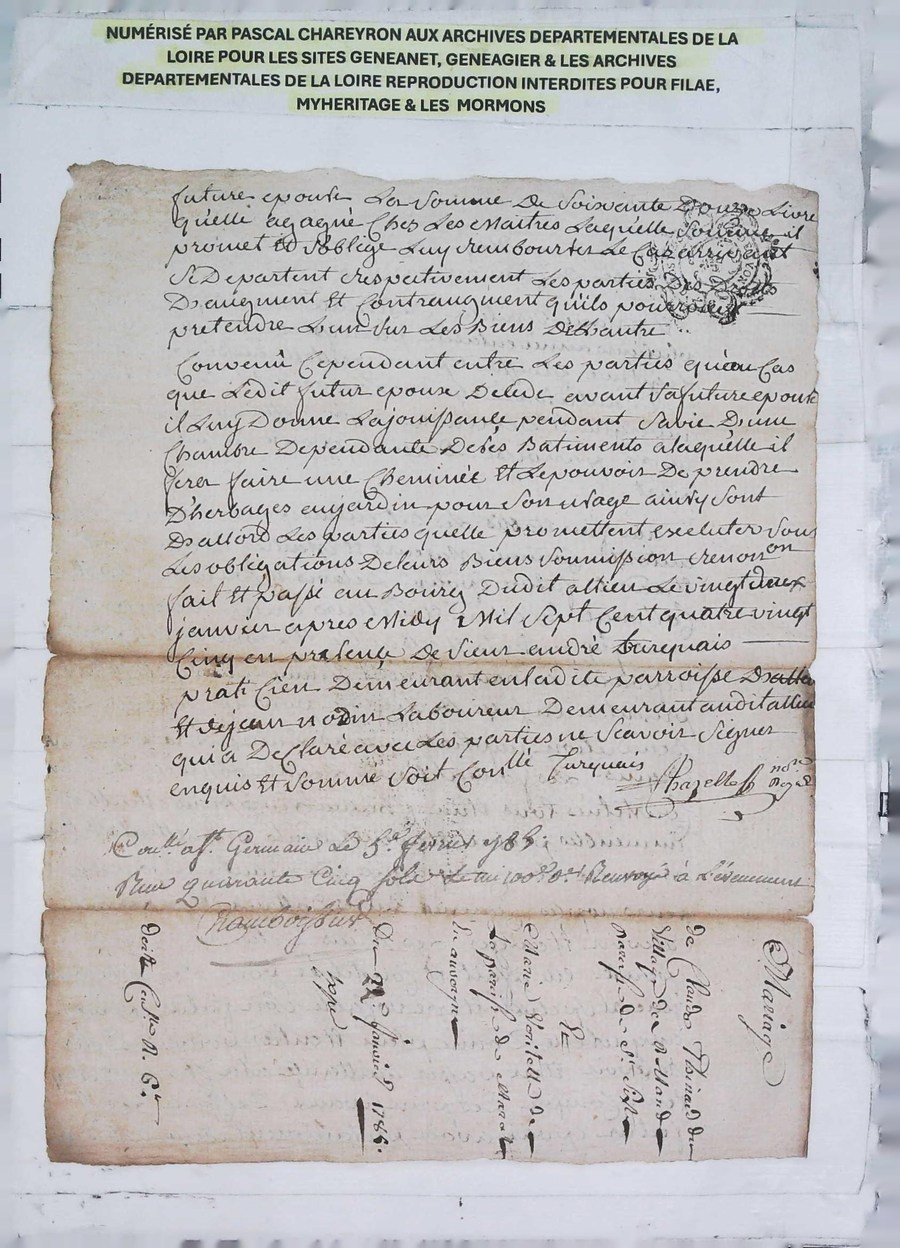 NUMÉRISÉ PAR PASCAL CHAREYRON AUX ARCHIVES DEPARTEMENTALES DE LA
LOIRE POUR LES SITES GENEANET, GENEAGIER & LES ARCHIVES
DEPARTEMENTALES DE LA LOIRE REPRODUCTION INTERDITES POUR FILAE,
MYHERITAGE & LES MORMONS
future epouse La somme De Soixante Douze Livre
qu'elle agagné Chez Les Maitres Laquelle Somme il
promet Et Soblige Luy rembourser Le Cas arrivant
Se Departent respectivement Les parties Des Droits
D'augment Et Contraugment qu'ils pouroient
pretendre L'un Sur Les Biens De Lautre
Convenu Cependant entre Les parties qu'au Cas
que Ledit futur epoux Decede avant Sa future epouse
il Luy Donne La jouissance pendant Sa vie D'une
Chambre Dependante De Ses Batiments a laquelle il
fera faire une Cheminée Et Le pouvoir De prendre
D'herbages au jardin pour Son usage ainsy Sont
D'accord Les parties quelle promettent executer Sous
Les obligations De leurs Biens Soumission renon on
fait Et passé au Bourg Dudit attieu Le vingt deux
janvier apres Midy Mil Sept Cent quatre vingt
Cinq en presence De Sieur andré turquais
praticien Demeurant en ladite parroisse D'attieu
Et de jean nodin Laboureur Demeurant audit attieu
qui a Declaré avec Les parties ne Scavoir Signer
enquis Et Sommé Soit Con.llé Turquais
Chazelles no.re Royal
Con.llé a S.t Germain Le 5.e fevrier 1785
Recu quarante Cinq Sols Renvoyé à L'evenement
Mariage
de Claude Thinaud du
village de
Paroisse de S.t
Et
Marie de
La paroisse de
En auvergne
Du 22 Janvier 1785.
Exp.e